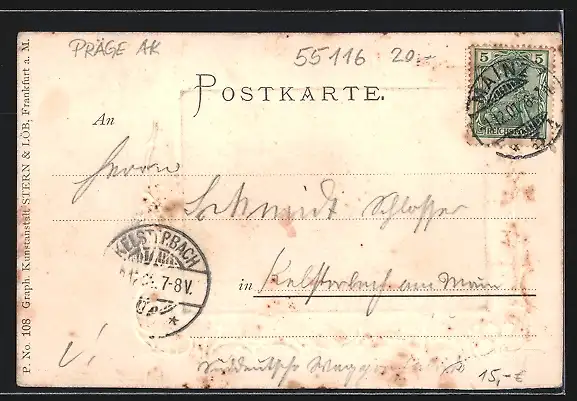 PRÄGE AK
55116 20.-
5 5
REICHSPOST
MAINZ
POSTKARTE.
An
Herrn
Schmidt Schlosser
in Kelsterbach am Main
KELSTERBACH
7-8V.
Süddeutsche
15,-€
P. No. 108 Graph. Kunstanstalt STERN & LÖB, Frankfurt a. M.